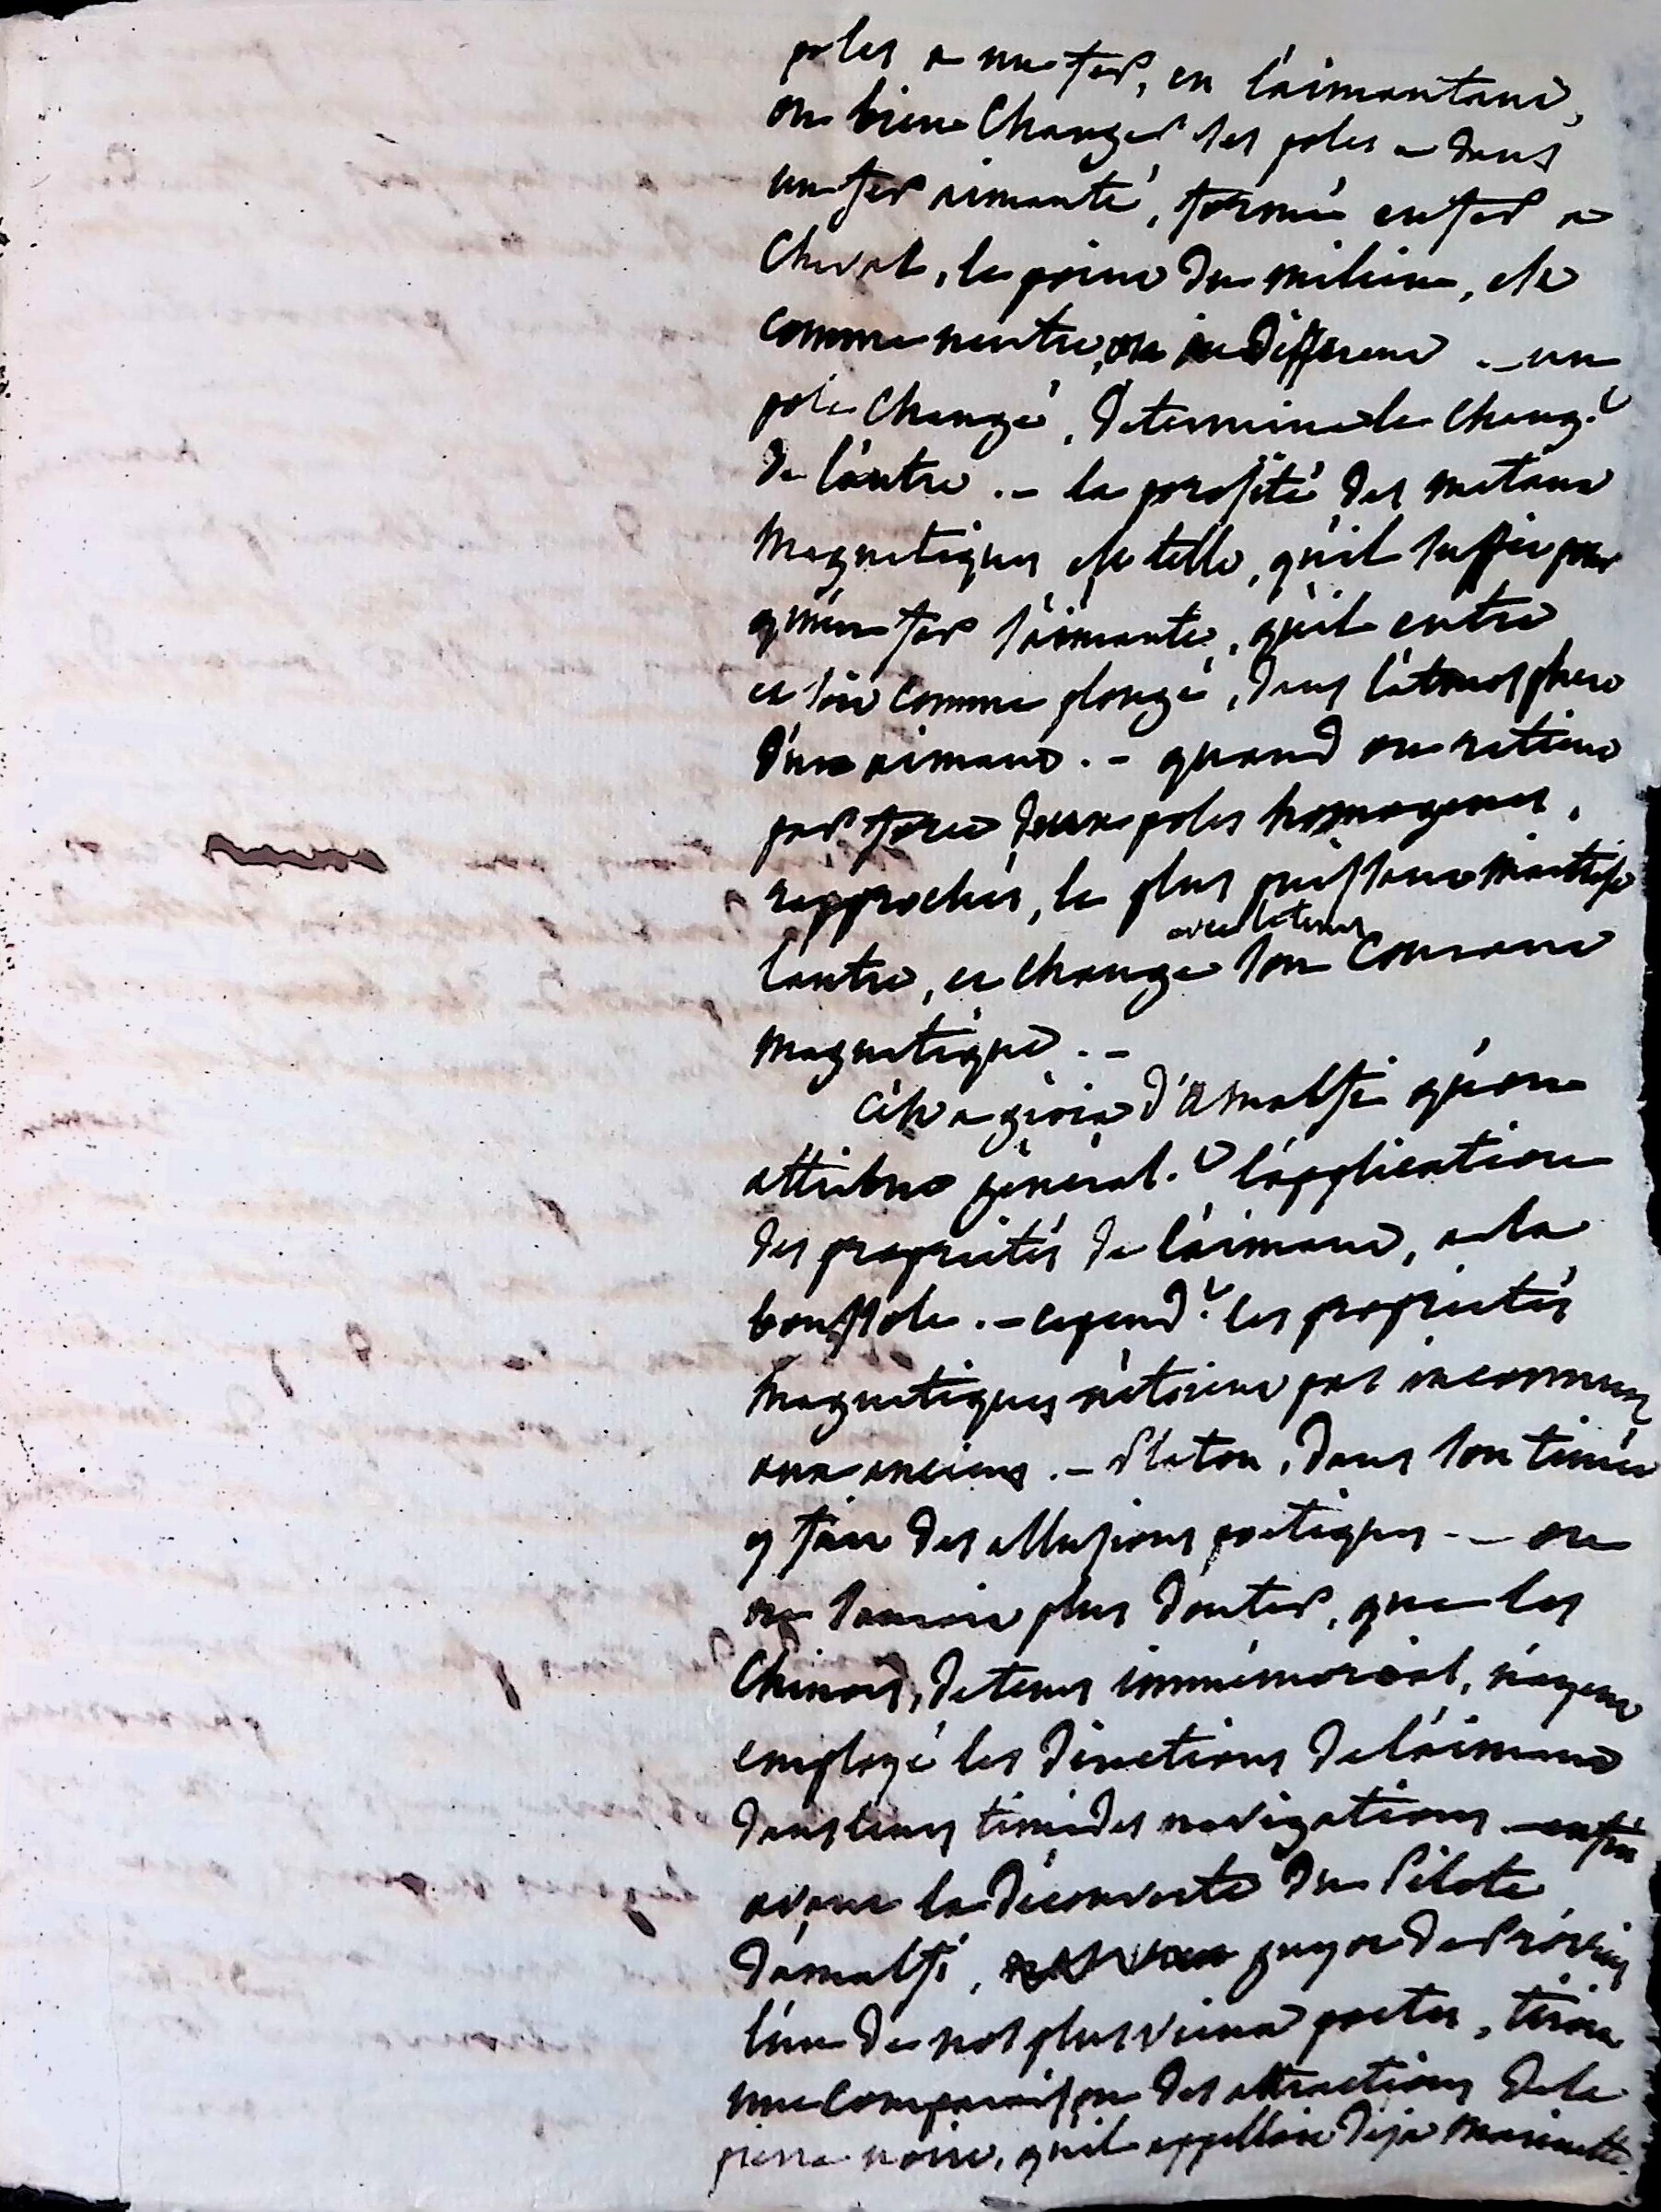 poles a un fer, en l'aimantant,
ou bien changer ses poles - dans
un fer aimanté, formé en fer a
cheval, le point du milieu, est
comme neutre, ou indifferent - un
pole changé, determine le chang.t
de l'autre. - la porosité des metaux
magnetiques est telle, qu'il suffit pour
qu'un fer s'aimante, qu'il entre
et soit comme plongé, dans l'atmosphere
d'un aimant. - quand on retient
par force deux poles homogenes,
rapprochés, le plus puissant maitrise
avec le tems
l'autre, et change son courant
magnetique. -
c'est a gioia d'amalfi qu'on
attribue général.t l'application
des proprietés de l'aimant, a la
boussole. - cepend.t les proprietés
magnetiques n'etoient pas inconnues
aux anciens. - Platon, dans son timée
y fait des allusions poetiques - on
ne sauroit plus douter, que les
Chinois, de tems immémorial, n'ayent
employé les directions de l'aimant
dans leurs timides navigations - enfin
avant la découverte du Pilote
d'amalfi, guyot de Provins
l'un de nos plus vieux poetes, tiroit
une comparaison des attractions de la
pierre noire, qu'il appelloit deja marinette.